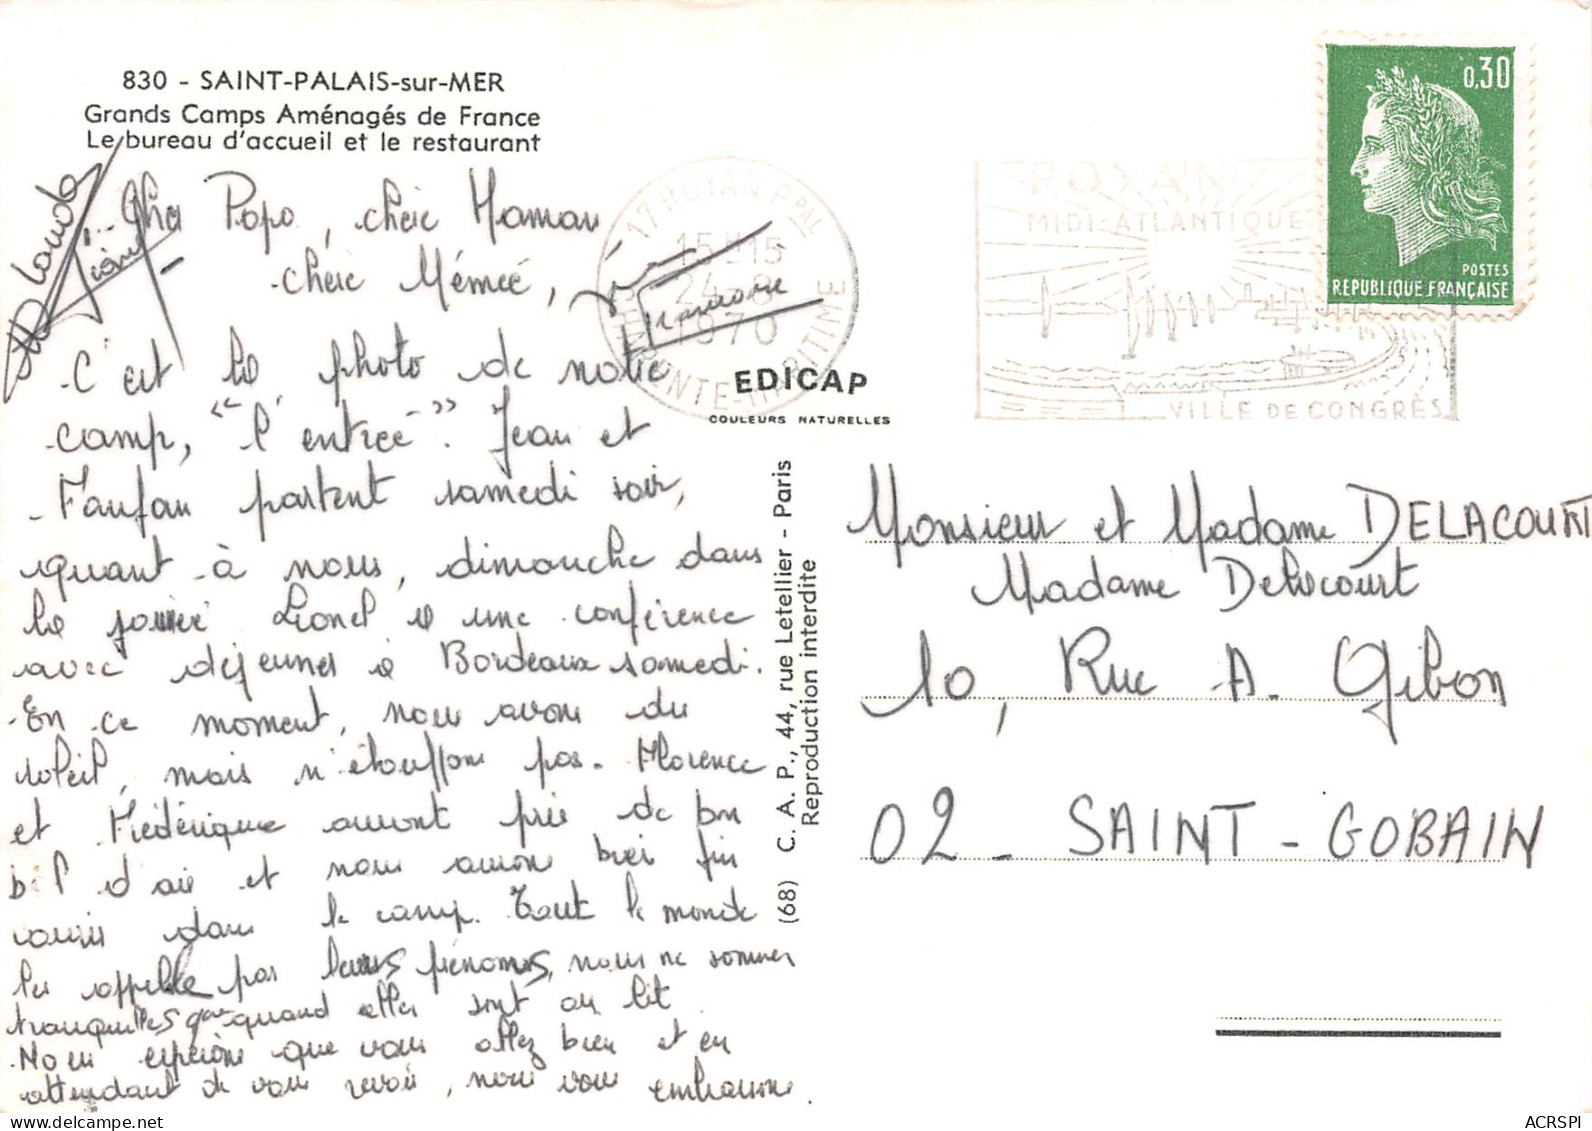 830 - SAINT-PALAIS-sur-MER
Grands Camps Aménagés de France
Le bureau d'accueil et le restaurant
Cher Papa, chère Maman
chère Mémée,
C'est la photo de notre
camp, "l'entrée". Jean et
Fanfan partent samedi soir,
quant à nous, dimanche dans
la journée Lionel a une conférence
avec déjeuner à Bordeaux samedi.
En ce moment, nous avons du
soleil, mais n'étouffons pas. Florence
et Frédérique auront pris de bon
bol d'air et nous aurons bien
dans le camp. Tout le monde
les appelle par leurs prénoms, nous ne sommes
tranquilles que quand elles sont au lit
Nous espérons que vous allez bien et en
attendant de vous revoir, nous vous embrassons.
17 ROYAN PPAL
15H15
24-8
1970
CHARENTE-MARITIME
EDICAP
COULEURS NATURELLES
ROYAN
MIDI-ATLANTIQUE
VILLE DE CONGRÈS
0,30
POSTES
REPUBLIQUE FRANÇAISE
(68) C. A. P., 44, rue Letellier - Paris
Reproduction interdite
Monsieur et Madame DELACOURT
Madame Delacourt
10, Rue A. Gibon
02 - SAINT-GOBAIN
delcampe.net
ACRSPI